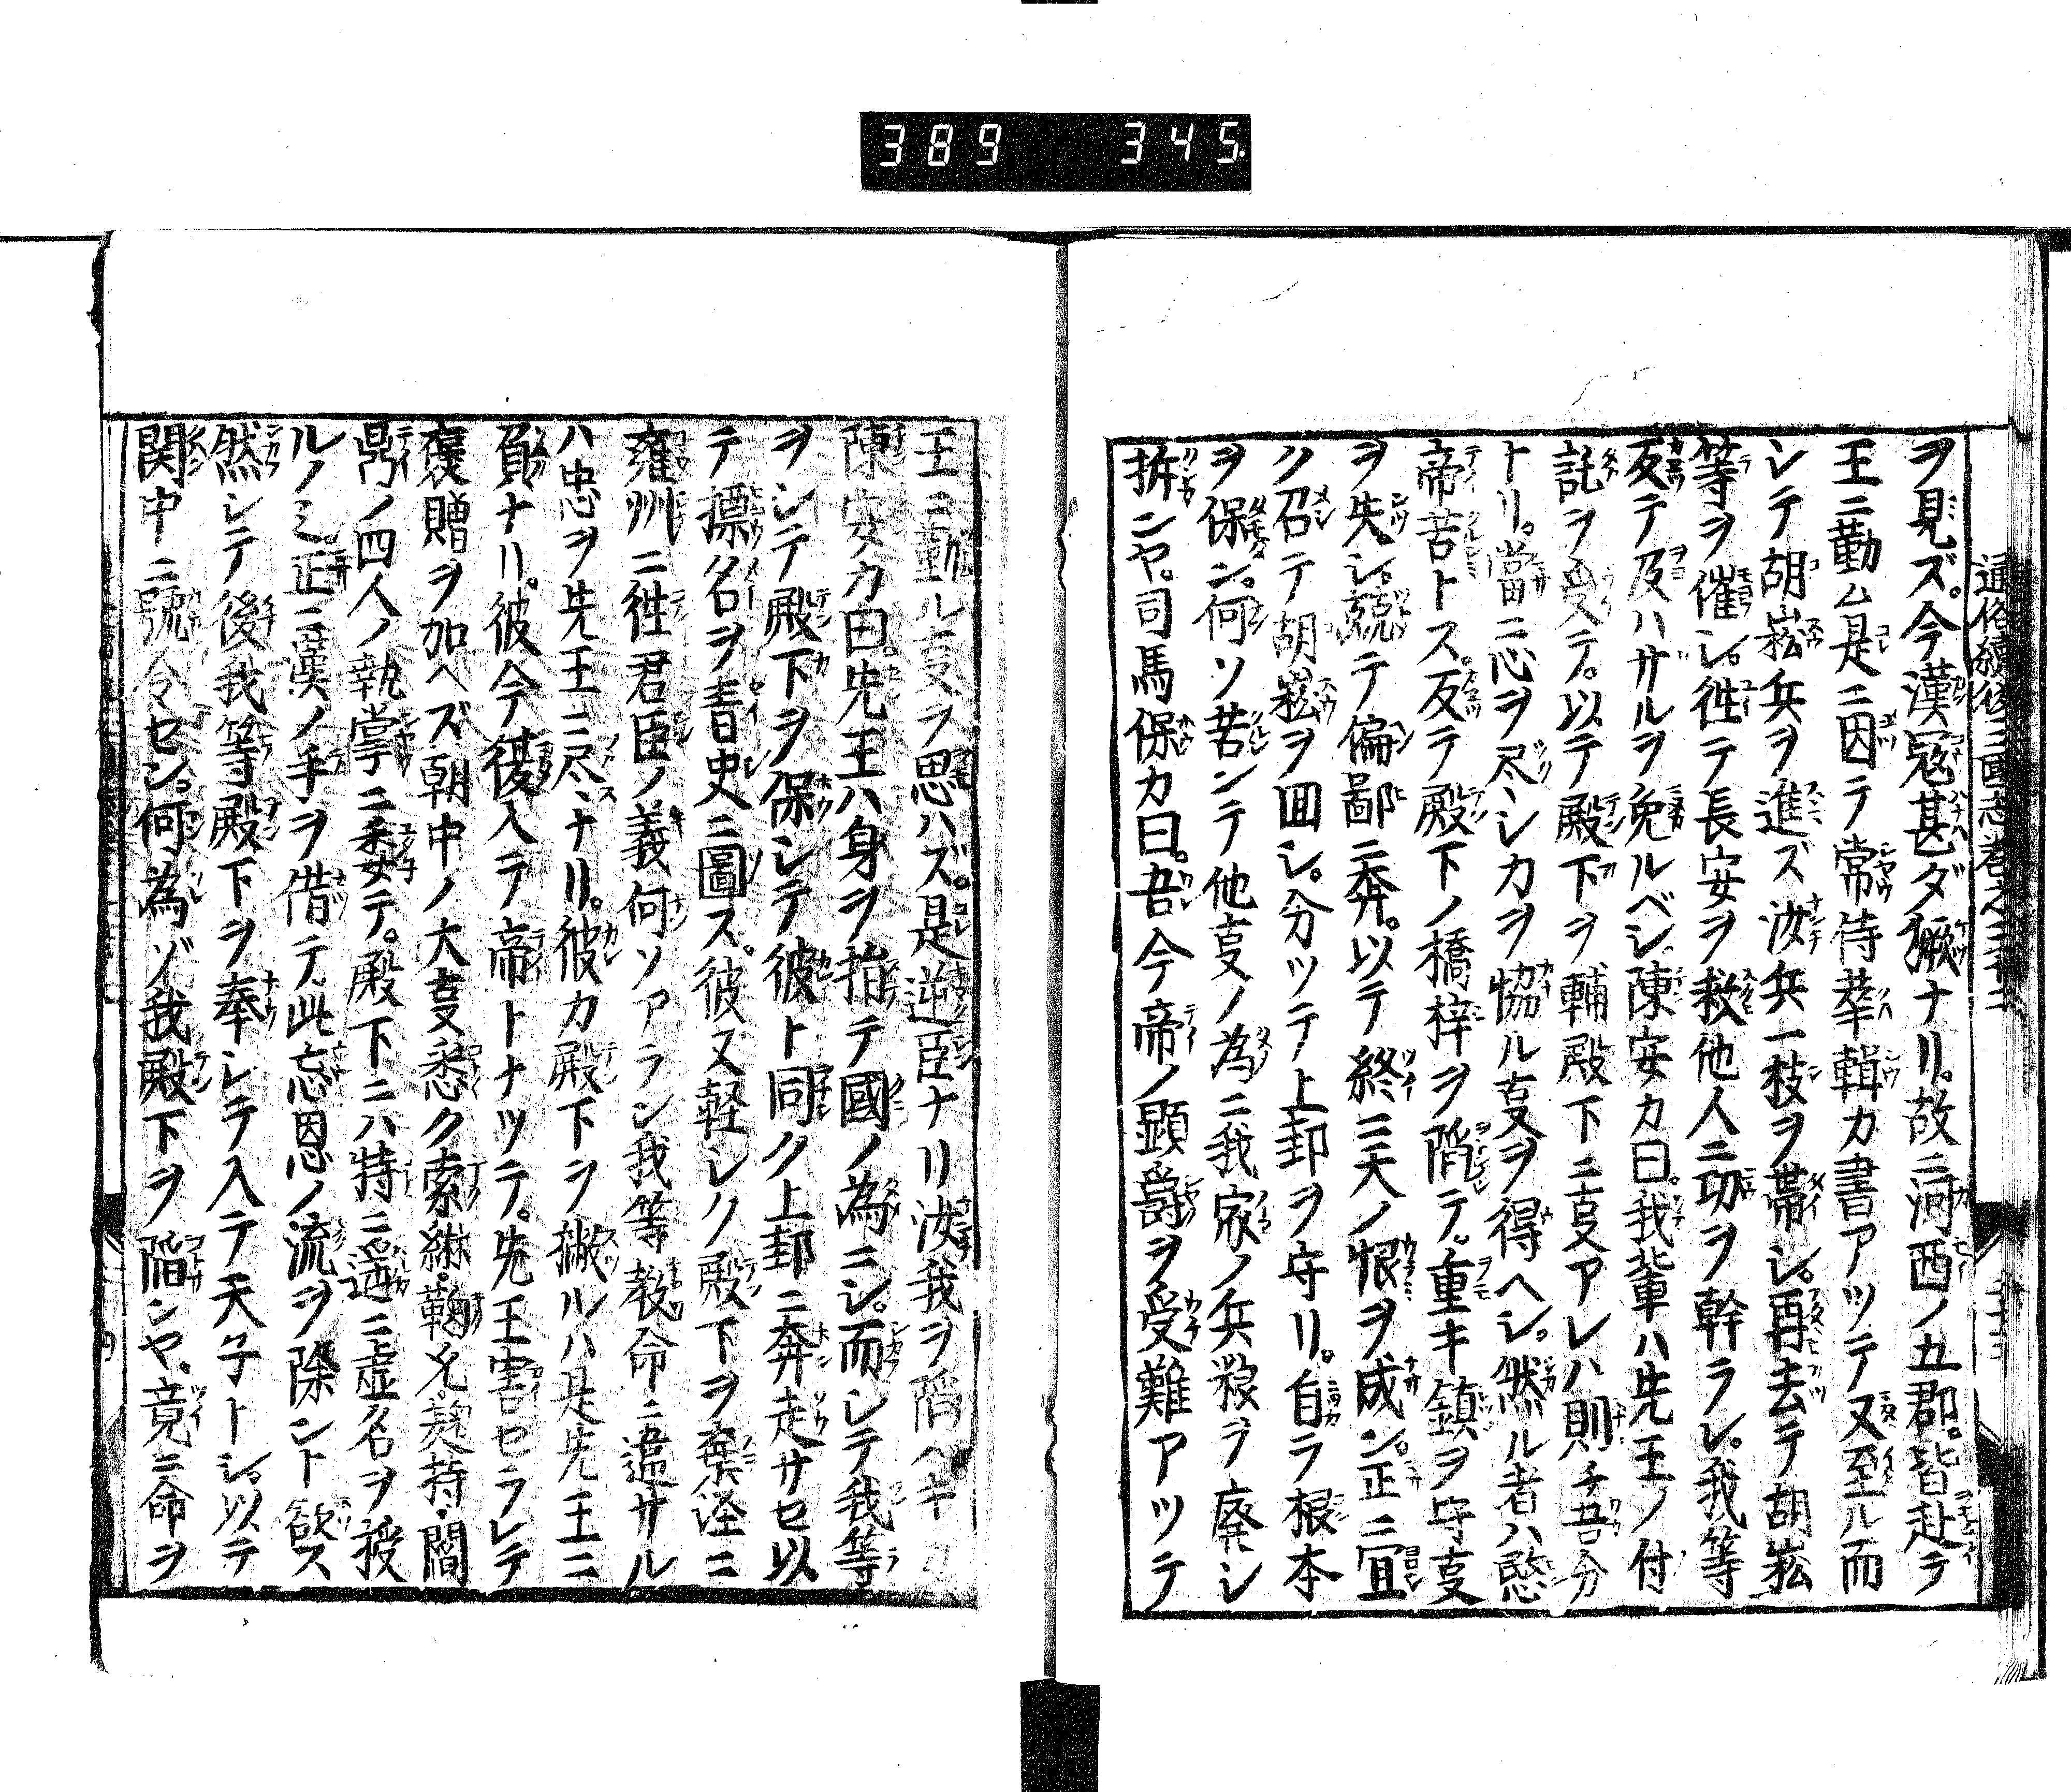 389 345
通俗續後三國志卷之二十二
ヲ見ズ。今漢寇甚ダ獗ナリ。故ニ河西ノ五郡。皆赴テ
王ニ勤ム是ニ因テ常侍華輯カ書アツテ又至ル而
シテ胡崧兵ヲ進ズ汝兵一枝ヲ帯シ。再去テ胡崧
等ヲ催シ。徃テ長安ヲ救他人ニ功ヲ幹ラレ。我等
反テ及ハザルヲ免ルベシ。陳安カ曰。我輩ハ先王ノ付
託ヲ受テ。以テ殿下ヲ輔殿下ニ㕝アレハ則チ吾分
トリ。當ニ心ヲ尽シカヲ恊ル㕝ヲ得ヘシ。然ル者ハ愍
帝苦トス。反テ殿下ノ橋梓ヲ陷テ。重キ鎮ヲ守㕝
ヲ失シ。競テ偏鄙ニ奔。以テ終ニ天ノ恨ヲ成ン。正ニ宜
ク召テ胡崧ヲ囬シ。分ツテ上邽ヲ守リ。自ラ根本
ヲ保ン。何ソ苦ンテ他㕝ノ為ニ我家ノ兵粮ヲ廃シ
拆ンヤ。司馬保カ曰。吾今帝ノ顕爵ヲ受難アツテ
王ニ勤ル㕝ヲ思ハズ。是逆臣ナリ汝我ヲ陷ヘキカ
陳安カ曰。先王ハ身ヲ捐テ國ノ為ニシ。而シテ我等
ヲシテ殿下ヲ保シテ彼ト同ク上邽ニ奔走サセ以
テ標名ヲ青史ニ圖ス。彼又軽シク殿下ヲ棄怪ニ
雍州ニ徃君臣ノ義何ソアラン我等教命ニ違サル
ハ忠ヲ先王ニ尽ナリ。彼カ殿下ヲ撇ルハ是先王ニ
負ナリ。彼今復入テ帝トナツテ。先王害セラレテ
褒贈ヲ加ヘズ朝中ノ大㕝悉ク索綝・鞠允麹持・閻
鼎ノ四人ノ執掌ニ委テ。殿下ニハ特ニ遥ニ虚名ヲ授
ルノミ。正ニ漢ノ手ヲ借テ。此忘恩ノ流ヲ除ント欲ス
然シテ後我等殿下ヲ奉シテ入テ天子トシ。以テ
関中ニ號令セン。何為ゾ我殿下ヲ陷ンヤ。竟ニ命ヲ